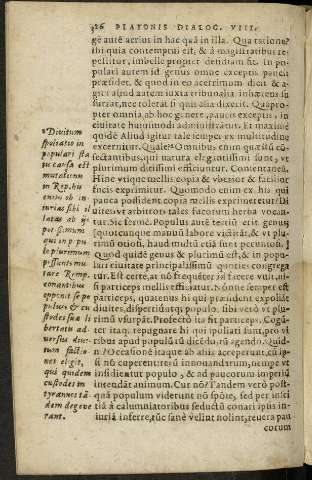 26 PLATONIS DIALOG. VIII.
gē autē acrius in hac quā in illa. Qua ratione?
ibi quia contemptui est, & à magistratibus re
pellitur, imbelle propter desidiam fit. In po
pulari autem id genus omne exceptis paucis
præsidet, & quod in eo acerrimum dicit & a-
git: aliud autem iuxta tribunalia inhærens su
surrat, nec tolerat si quis alia dixerit. Quapro-
pter omnia ab hoc genere, paucis exceptis, in
ciuitate huiusmodi administrātur. Et maximè
quidē Aliud igitur tale semper ex multitudine
excernitur. Quale? Omnibus enim quæstū cō
sectantibus, qui natura elegantissimi sunt, vt
plurimum ditissimi efficiuntur. Contentaneū.
Hinc vtiq; mellis copia & vberior & facilior
fucis exprimitur. Quomodo enim ex his qui
pauca possident copia mellis exprimeretur? Di
uites vt arbitror tales fucorum herba vocan-
tur. Sic fermè. Populus autē tertiū erit genus
quotcunque manuū labore victitāt, & vt plu-
rimū otiosi, haud multū etiā sunt pecuniosi.
Quod quidē genus & plurimū est, & in popu-
lari ciuitate principalissimū quoties congrega
tur. Est certè, at nō frequēter id facere vult, ni-
si particeps mellis efficiatur. Nōnne semper est
particeps, quatenus hi qui præsident expoliāt
diuites, disperciūtq; populo, sibi verò vt pluri
mū vsurpāt. Profectò ita fit particeps. Cogū-
ter itaq; repugnare hi qui spoliati sunt, pro vi
ribus apud populū tū dicēdo, tū agendo. Quid-
ni? Occasionē itaque ab aliis acceperunt, cū ip-
si nō cuperent res innouandarum, nempe vt
insidientur populo, & ad paucorum imperiū
intendāt animum. Cur nō? Tandem verò post-
quā populum viderint nō spōte, sed per insci
tiā à calumniatoribus seductū conari ipsis iniu-
uriā inferre, tūc sanè velint nolint, reuera pau
corum
Diuitum
spoliatio in
popularī sta
tu causa est
mutationis
in Rep. hu
enim ob in
iurias sibi il
latas
quia in po pu
lo plurimum
possunt mu
tare Remp.
conantibus
populus & cu
stodes suæ li
bertatis ad-
uersus diui-
tum factio
nes eligit,
qui quidem
custodes in
tyrannos tā-
dem degene
rant.